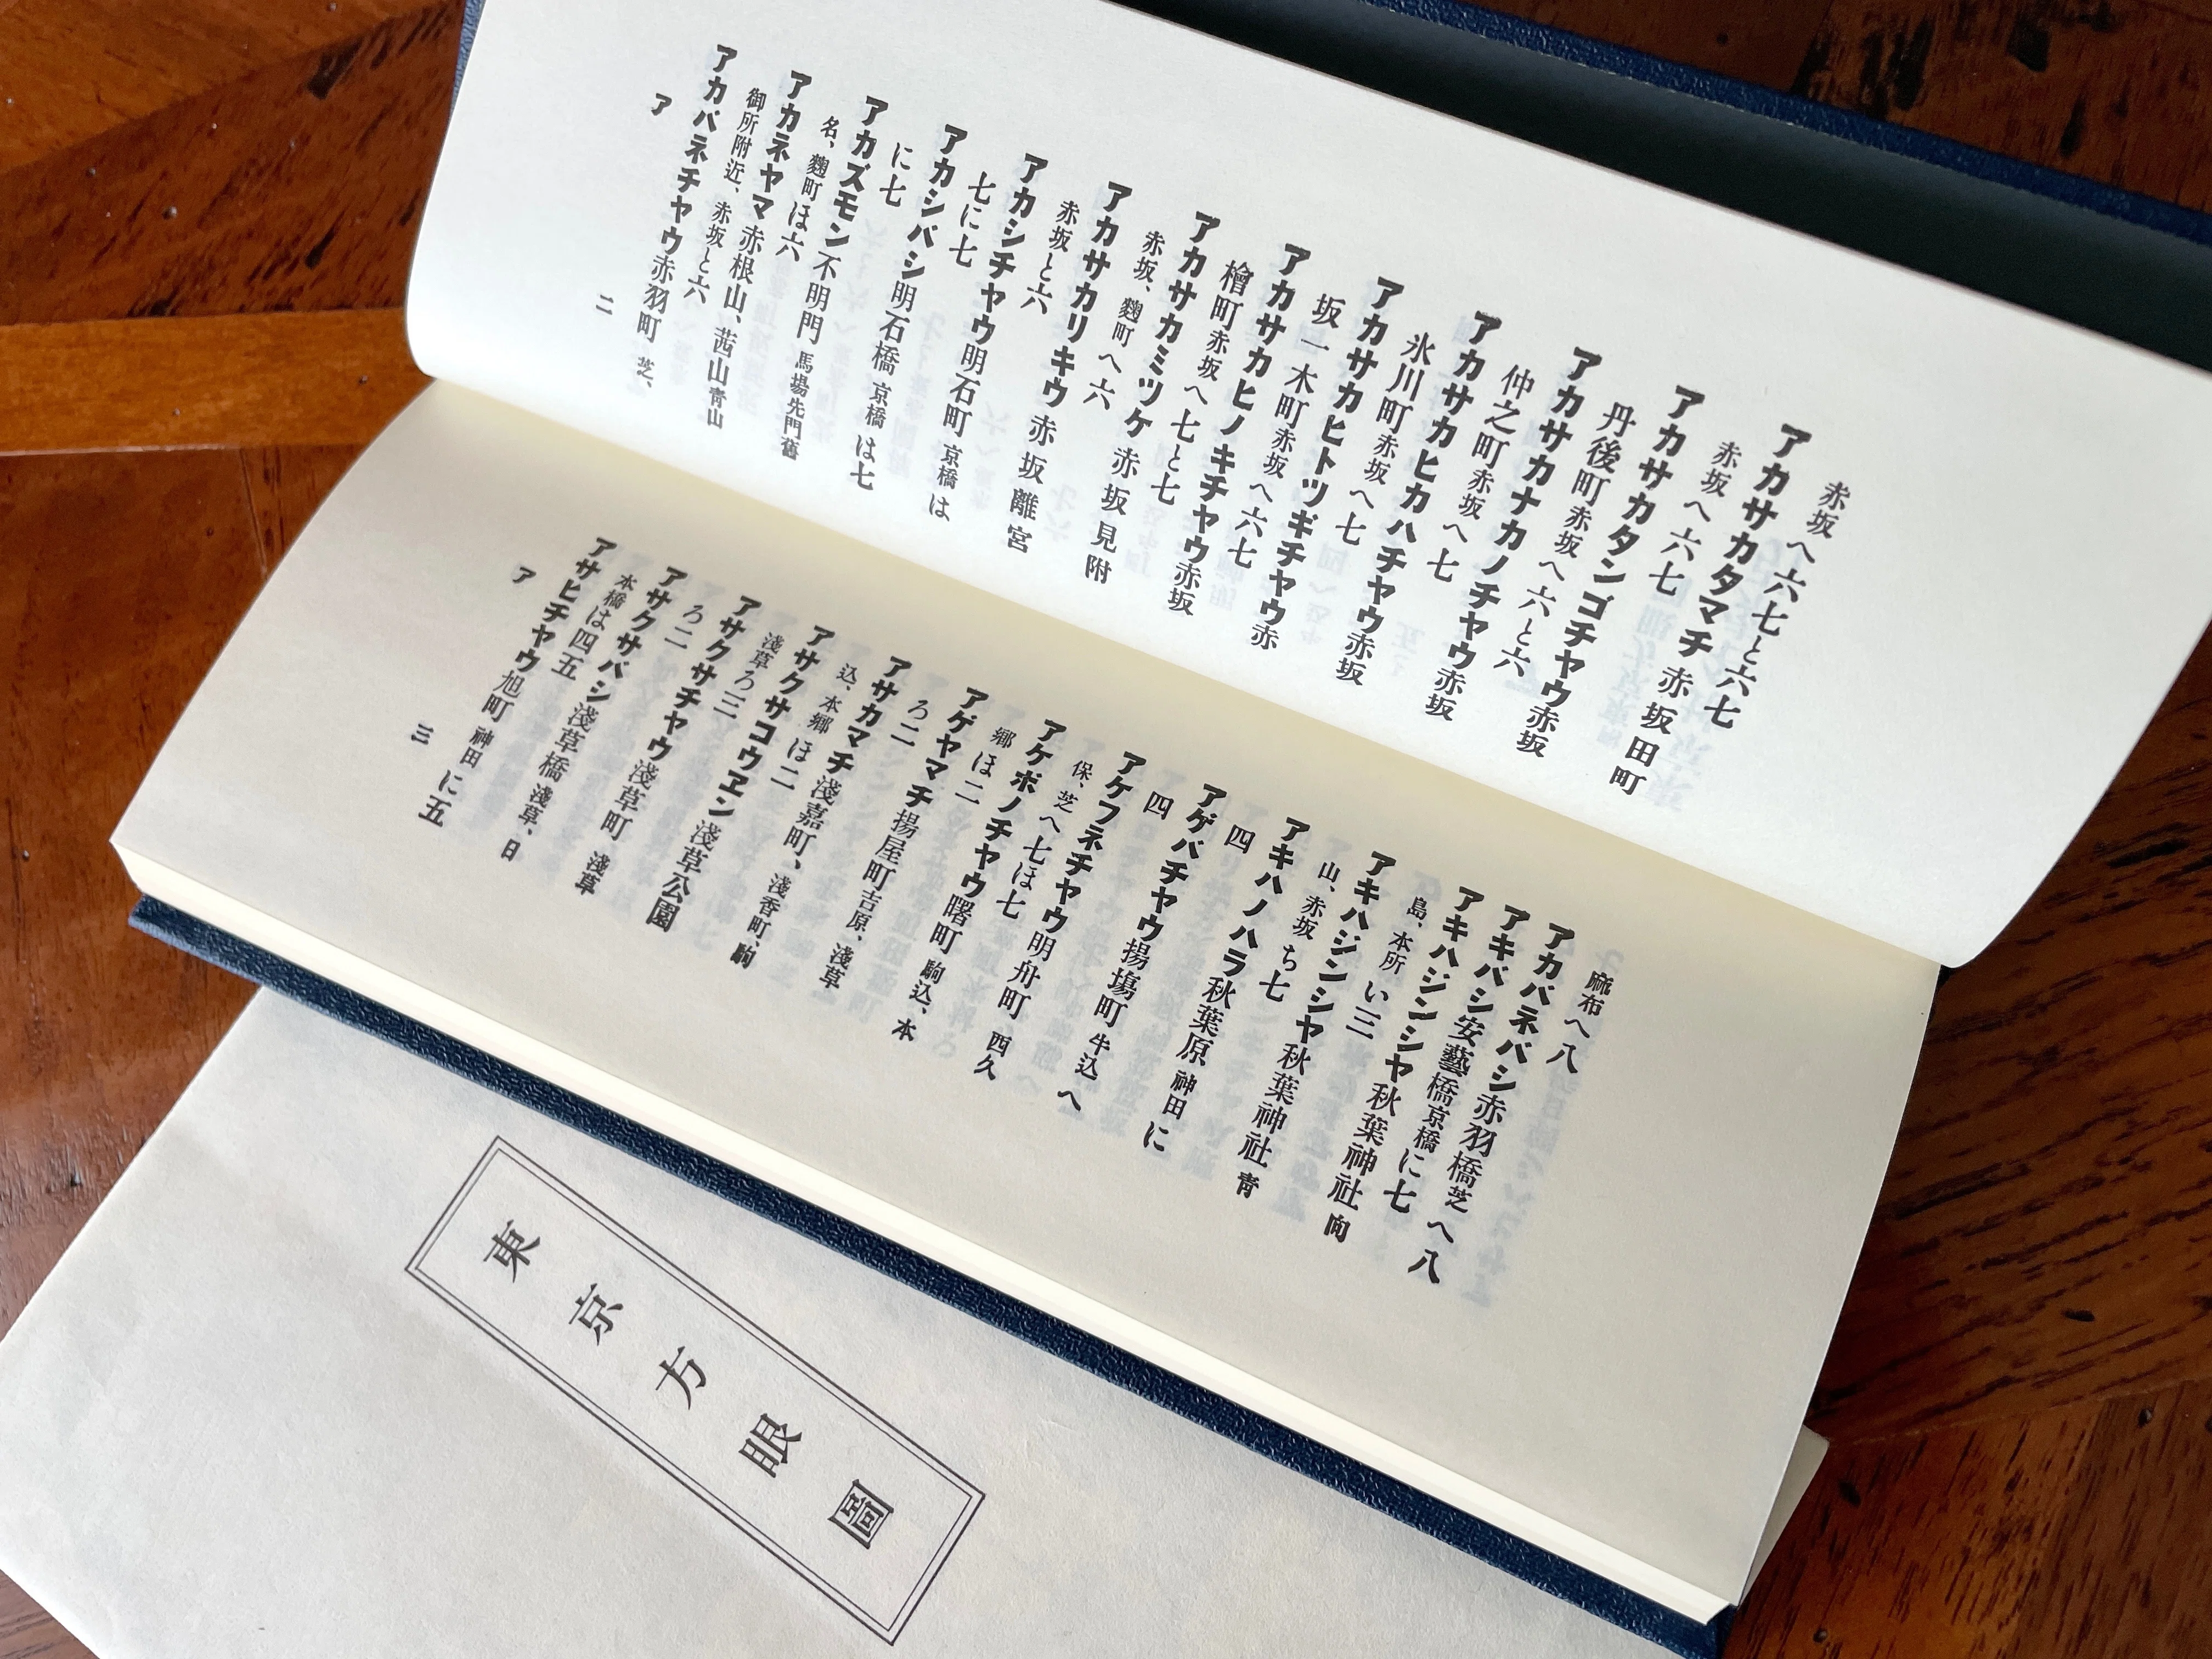 赤坂へ六七と六七
アカサカタマチ 赤坂田町
赤坂へ六七
アカサカタンゴチヤウ赤坂
丹後町赤坂へ六と六
アカサカナカノチヤウ赤坂
仲之町赤坂へ七
アカサカヒカハチヤウ赤坂
氷川町赤坂へ七
アカサカヒトツギチヤウ赤
坂一木町赤坂へ六七
アカサカヒノキチヤウ赤坂
檜町赤坂へ七と七
アカサカミツケ 赤坂見附
赤坂、麴町へ六
アカサカリキウ 赤坂離宮
赤坂と六
アカシチヤウ明石町 京橋は
七に七
アカシバシ明石橋 京橋は七
に七
アカズモン不明門 馬場先門舊
名、麴町ほ六
アカネヤマ赤根山、茜山青山
御所附近、赤坂と六
アカバネチヤウ赤羽町 芝、
ア
二
麻布へ八
アカバネバシ赤羽橋芝へ八
アキバシ安藝橋京橋に七
アキハジンシヤ秋葉神社 向
島、本所い三
アキハジンシヤ秋葉神社 青
山、赤坂ち七
アキハノハラ秋葉原 神田に
四
アゲバチヤウ揚塲町 牛込へ
四
アケフネチヤウ明舟町 西久
保、芝へ七ほ七
アケボノチヤウ曙町 駒込、本
郷ほ二
アゲヤマチ揚屋町吉原、淺草
ろ二
アサカマチ淺嘉町、淺香町、駒
込、本郷ほ二
アサクサコウヱン淺草公園
淺草ろ三
アサクサチヤウ淺草町 淺草
ろ二
アサクサバシ淺草橋 淺草、日
本橋は四五
アサヒチヤウ旭町 神田に五
ア
三
東京方眼圖